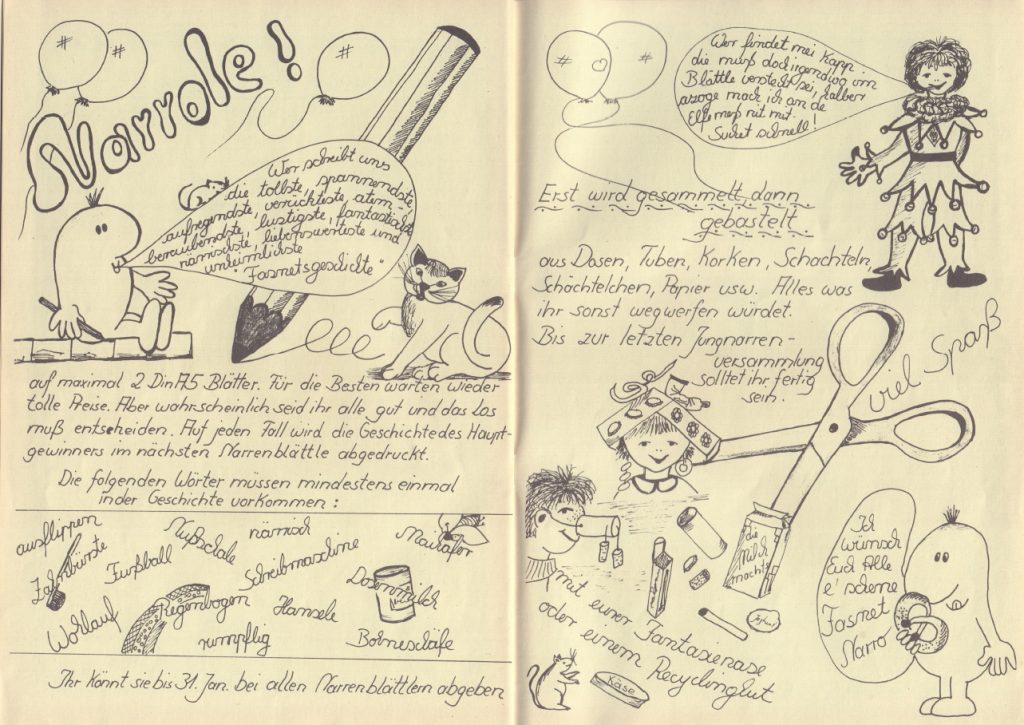 Narrole!
Wer schreibt uns
die tollste, spannendste
aufregendste, verrückteste, atem-
beraubendste, lustigste, fantastischste
närrischste, liebenswerteste und
unheimlichste
"Fasnetsgeschichte"
auf maximal 2 Din A5 Blätter. Für die Besten warten wieder
tolle Preise. Aber wahrscheinlich seid ihr alle gut und das Los
muß entscheiden. Auf jeden Fall wird die Geschichte des Haupt-
gewinners im nächsten Narrenblättle abgedruckt.
Die folgenden Wörter müssen mindestens einmal
in der Geschichte vorkommen:
ausflippen
Nußschale
närrisch
Maikäfer
Zahnbürste
Fußball
Schreibmaschine
Dosenmilch
Wohlauf
Regenbogen
Hansele
rumpflig
Bohneschäfe
Ihr könnt sie bis 31. Jan. bei allen Narrenblättlern abgeben
Wer findet mei Kapp
die muß doch irgendwo im
Blättle versteckt sei, halber
azoge mach ich an de
Elfemeß nit mit.
Suchet schnell!
Erst wird gesammelt dann
gebastelt
aus Dosen, Tuben, Korken, Schachteln
Schächtelchen, Papier usw. Alles was
ihr sonst wegwerfen würdet.
Bis zur letzten Jungnarren-
versammlung
solltet ihr fertig
sein.
viel Spaß
die
Milch
machts
mit eurer Fantasienase
oder einem Recyclinghut
Käse
Ich
wünsch
Euch Alle
e' schene
Fasnet
Narro